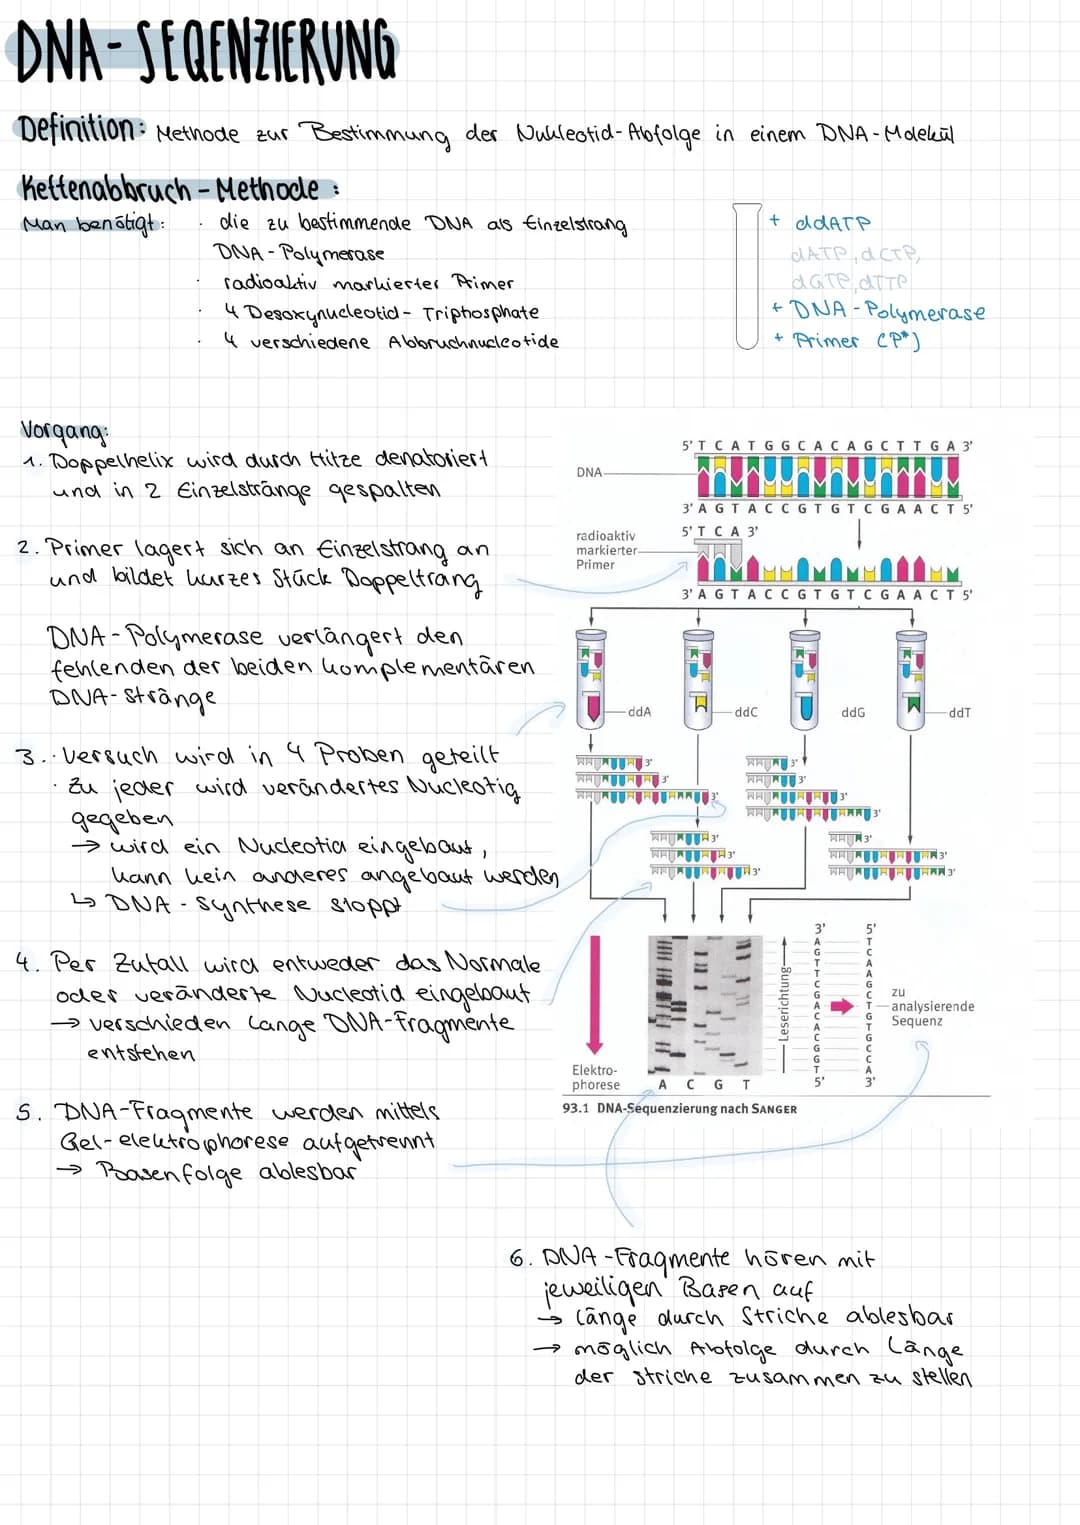 DNA-SEQENZIERUNG
Definition: Methode zur Bestimmung der Nukleotid-Abfolge in einem DNA-Molekül
Kettenabbruch-Methode:
Man benötigt: · die zu bestimmende DNA als Einzelstrang
DNA-Polymerase
· radioaktiv markierter Primer
· 4 Desoxynucleotid-Triphosphate
· 4 verschiedene Abbruchnucleotide
+ ddATP
dATP, dCTP,
dGTP, dTTP
+ DNA-Polymerase
+ Primer (P*)
Vorgang:
1. Doppelhelix wird durch Hitze denatoriert
und in 2 Einzelstränge gespalten
2. Primer lagert sich an Einzelstrang an
und bildet kurzes Stück Doppeltrang
DNA-Polymerase verlängert den
fehlenden der beiden komplementären
DNA-Stränge
3. · Versuch wird in 4 Proben geteilt
· Zu jeder wird verändertes Nucleotig
gegeben
→ wird ein Nucleotid eingebaut,
kann kein anderes angebaut werden
↳ DNA-Synthese stoppt
4. Per Zufall wird entweder das Normale
oder veränderte Nucleotid eingebaut
→ verschieden lange DNA-Fragmente
entstehen
5. DNA-Fragmente werden mittels
Gel-elektrophorese aufgetrennt
→ Basenfolge ablesbar
5' T C A T G G C A C A G C T T G A 3'
DNA
3' A G T A C C G T G T C G A A C T 5'
5' T C A 3'
radioaktiv
markierter
Primer
3' A G T A C C G T G T C G A A C T 5'
ddA
ddC
ddG
ddT
3'
3'
3'
3'
3'
3'
3'
3'
3'
3'
3'
3'
3'
Elektro-
phorese
A C G T
Leserichtung
3' A G T T C G A C A C G G T 5'
5' T C A A G C T G T G C C A 3'
zu
analysierende
Sequenz
93.1 DNA-Sequenzierung nach SANGER
6. DNA-Fragmente hören mit
jeweiligen Basen auf
→ Länge durch Striche ablesbar
→ möglich Abfolge durch Länge
der Striche zusammen zu stellen